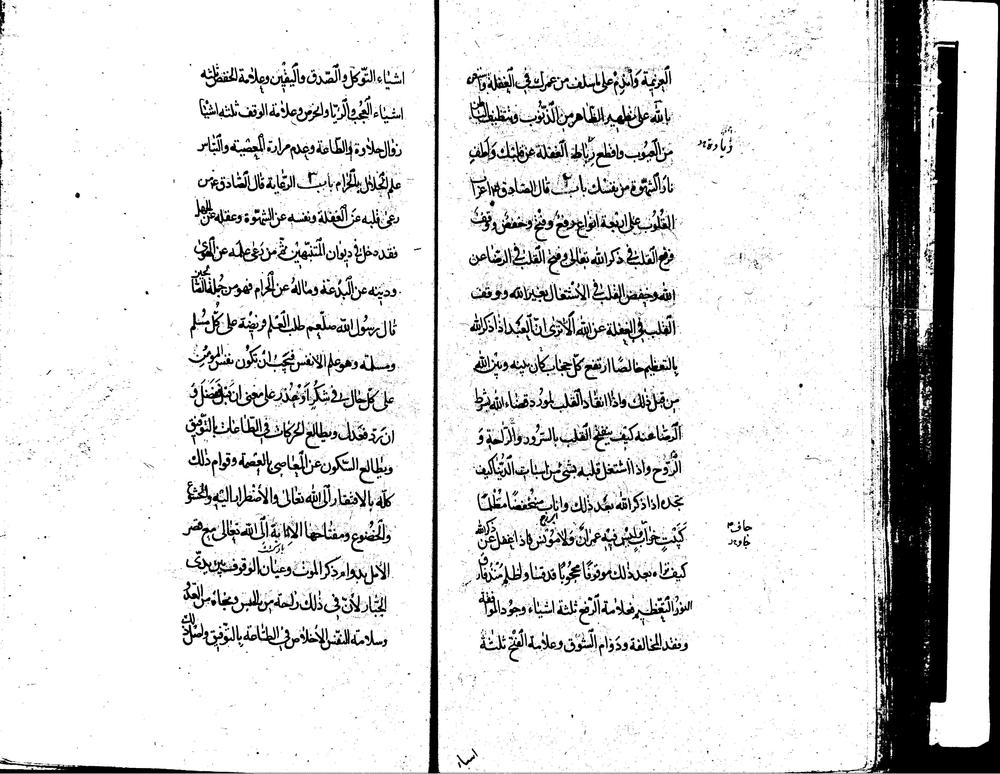 العزيمة واندم على ما سلف من عمرك في الغفلة واستعن
بالله على تطهير الظاهر من الذنوب وتنظيف الباطن
من العيوب واقطع رباط الغفلة عن قلبك واطف
نار الشهوة من نفسك باب ٢ قال الصادق ع اعراب
القلوب على اربعة انواع رفع وفتح وخفض ووقف
فرفع القلب في ذكر الله تعالى وفتح القلب في الرضا عن
الله وخفض القلب في الاشتغال بغير الله ووقف
القلب في الغفلة عن الله الا ترى ان العبد اذا ذكر الله
بالتعظيم خالصا ارتفع كل حجاب كان بينه وبين الله
من قبل ذلك واذا انقاد القلب لمورد قضاء الله بشرط
الرضا عنه كيف ينفتح القلب بالسرور والراحة و
الروح واذا اشتغل قلبه بشئ من اسباب الدنيا كيف
تجده اذا ذكر الله بعد ذلك واناب منخفضا مظلما
كبيت خراب ليس فيه عمران ولا مونس فاذا غفل عن ذكر الله
كيف تراه بعد ذلك موقوفا محجوبا قد قسا واظلم منذ فارق
النور التعظيم فعلامة الرفع ثلثة اشياء وجود الموافقة
وفقد المخالفة ودوام الشوق وعلامة الفتح ثلثة
زيادة
اشياء
اشياء التوكل والصدق واليقين وعلامة الخفض ثلثة
اشياء العجب والريا والحرص وعلامة الوقف ثلثه اشيا
زوال حلاوة الطاعة وعدم مرارة المعصية والتباس
علم الحلال بالحرام باب ٣ الرعاية قال الصادق ع من
رعى قلبه عن الغفلة ونفسه عن الشهوة وعقله عن الجهل
فقد دخل في ديوان المتنبهين ثم من رعى علمه عن الهوى
ودينه عن البدعة وماله عن الحرام فهو من جملة الصالحين
قال رسول الله صلعم طلب العلم فريضة على كل مسلم
ومسلمة وهو علم الانفس فيجب ان تكون نفس المومن
على كل حال في شكر او عذر على معنى ان قبل ففضل و
ان رد فعدل ويطالع الحركات في الطاعات بالتوفيق
ويطالع السكون عن المعاصي بالعصمة وقوام ذلك
كله بالافتقار الى الله تعالى والاضطرار اليه والخشوع
والخضوع ومفتاحها الانابة الى الله تعالى مع قصر
الامل بدوام ذكر الموت وعيان الوقوف بين يدي
الجبار لان في ذلك راحة من الحبس ونجاة من العدو
وسلامة النفس الاخلاص في الطاعة بالتوفيق واصل ذلك